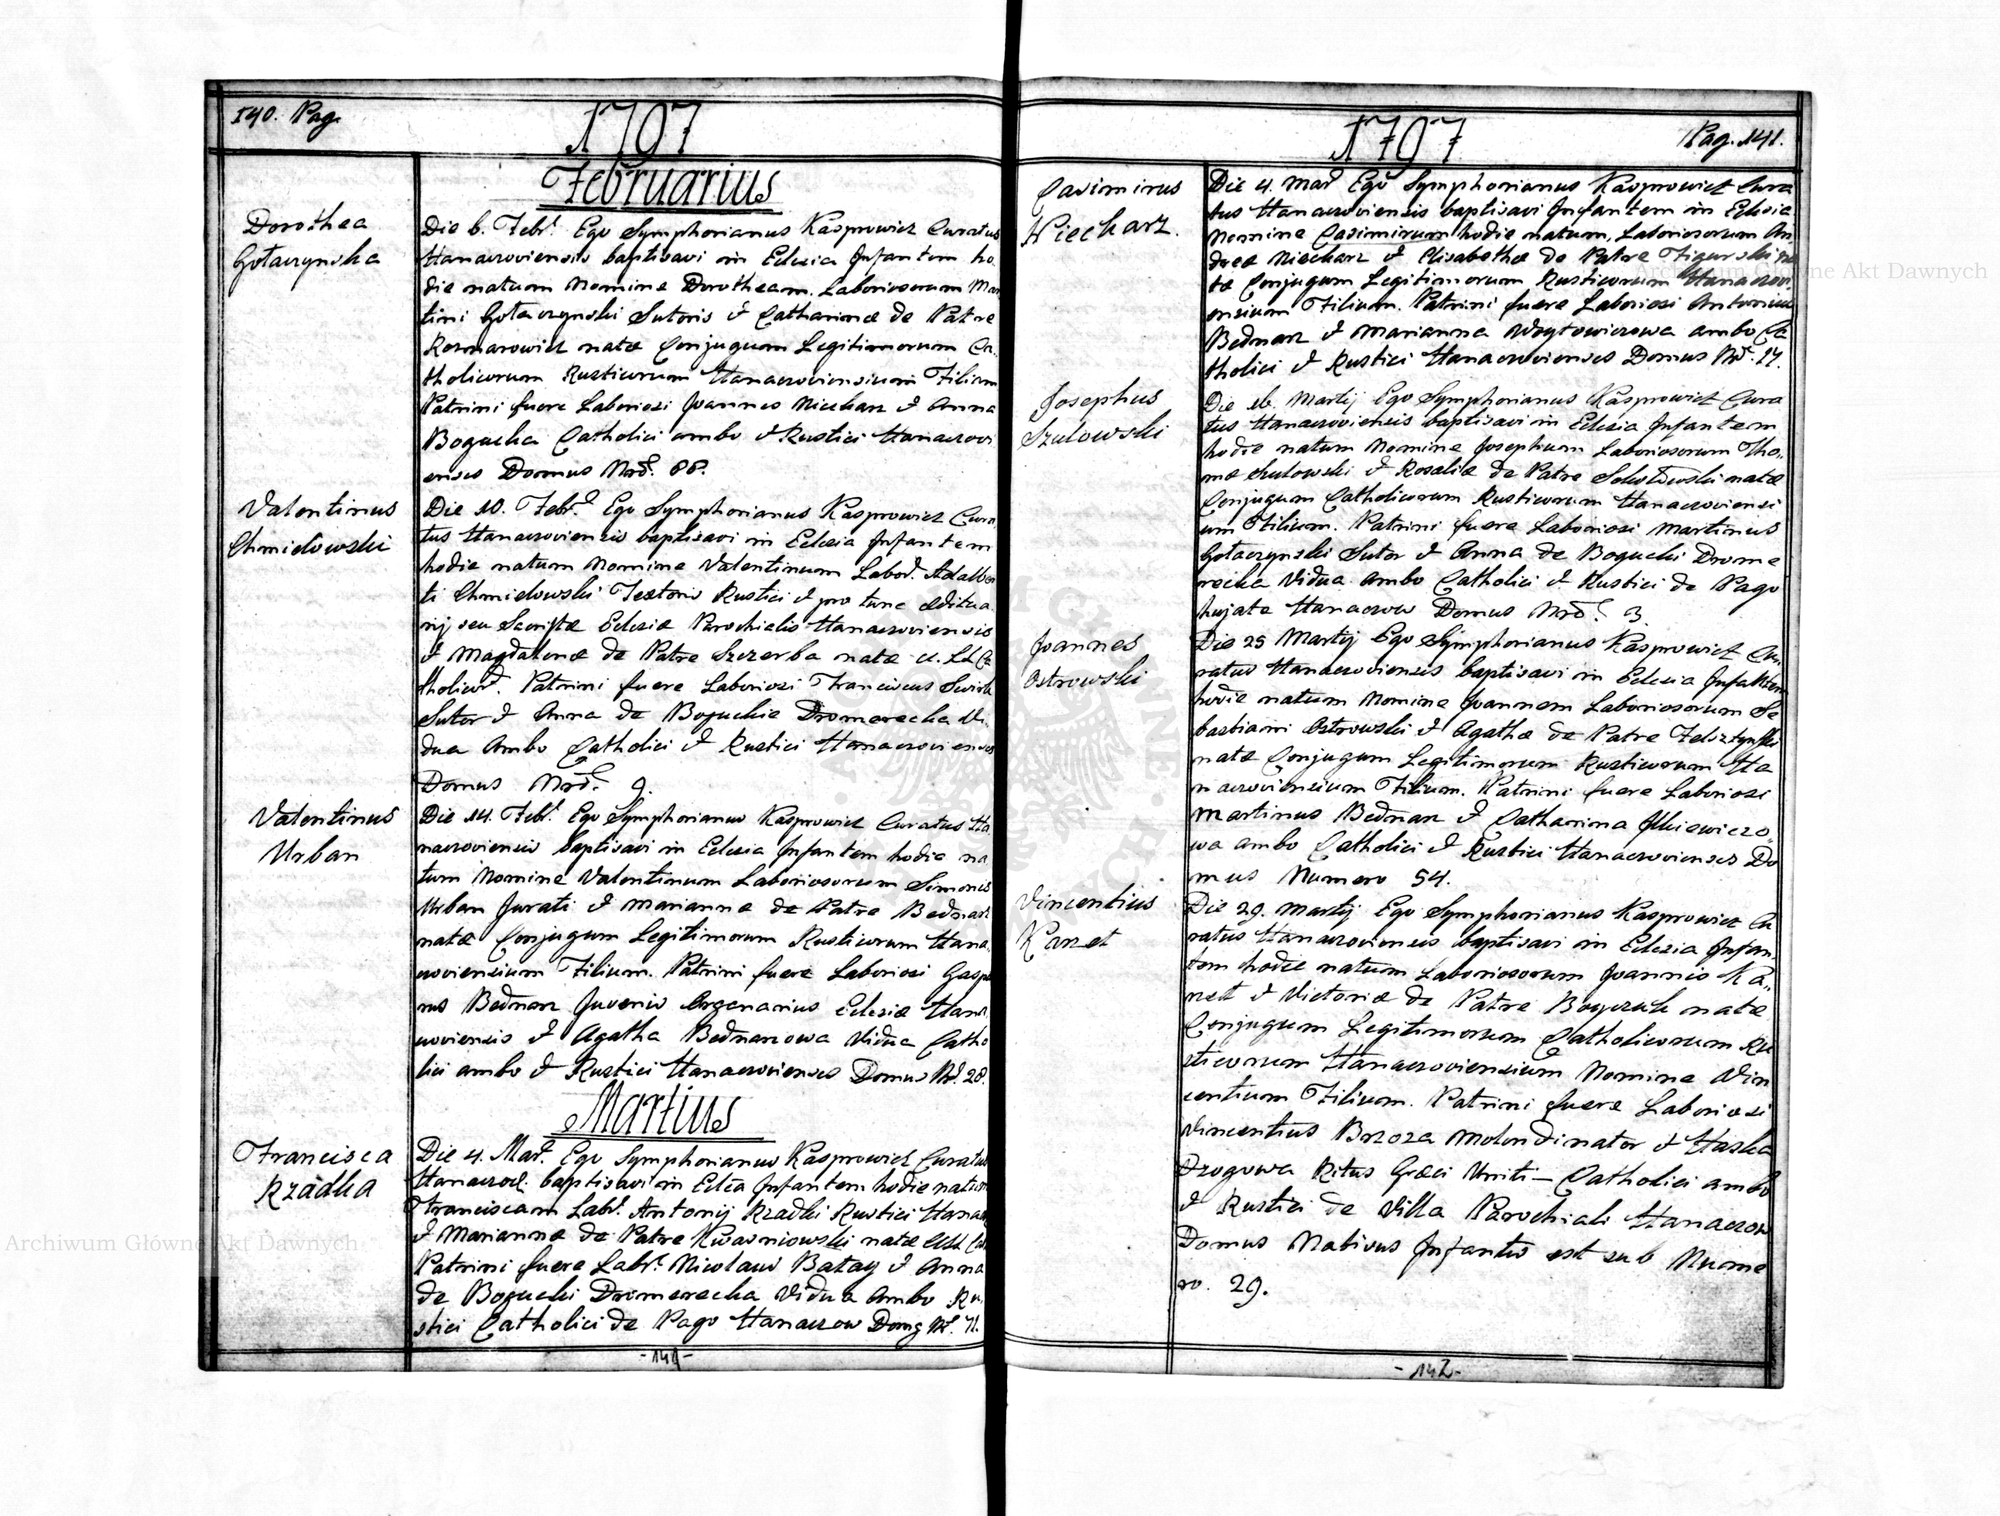 140. Pag.
1797
Februarius
Dorothea
Gołaczynska
Die 6. Febr. Ego Symphorianus Kasprowicz Curatus
Hanaczoviensis baptisavi in Eclesia Infantem ho
die natum Nomine Dorotheam. Laboriosorum Mar
tini Gołaczynski Sutoris & Catharinæ de Patre
natæ Conjugum Legitimorum Ca..
tholicorum Rusticorum Hanaczoviensium Filiam
Patrini fuere Laboriosi Joannes Niecharz & Anna
Bogucka Catholici ambo & Rustici Hanaczovi
enses Domus Nrō. 88.
Valentinus
Chmielowski
Die 10. Febr. Ego Symphorianus Kasprowicz Cura
tus Hanaczoviensis baptisavi in Eclesia Infantem
hodie natum Nomine Valentinum Labor. Adalber
ti Chmielowski Textoris Rustici & pro tunc Æditua
rij seu Sacristæ Eclesiæ Parochialis Hanaczoviensis
& Magdalenæ de Patre Szczerba natæ
tholicor. Patrini fuere Laboriosi Franciscus
Sutor & Anna de Boguckie Dromerecka Vi..
dua Ambo Catholici & Rustici Hanaczovienses
Domus Nrō. 9.
Valentinus
Urban
Die 14. Febr. Ego Symphorianus Kasprowicz Curatus Ha
naczoviensis baptisavi in Eclesia Infantem hodie na
tum Nomine Valentinum Laboriosorum Simonis
Urban Jurati & Marianna de Patre Bednarz
natæ Conjugum Legitimorum Rusticorum Hana
czoviensium Filium. Patrini fuere Laboriosi Gaspa
rus Bednarz Juvenis Organarius Eclesiæ Hana
czoviensis & Agatha Bednarzowa Vidua Catho
lici ambo & Rustici Hanaczovienses Domus Nr. 28.
Martius
Francisca
Rządka
Die 4. Mar. Ego Symphorianus Kasprowicz Curatus
Hanaczov. baptisavi in Eclēa Infantem hodie natam
Franciscam Labr. Antonij Rządki Rustici Hanacz
& Mariannæ de Patre Kwasniowski natæ
Patrini fuere Labr. Nicolaus Batay & Anna
de Bogucki Dromerecka Vidua Ambo Ru
stici Catholici de Pago Hanaczow Domg Nr. 71.
-141-
1797
Pag. 141.
Casimirus
Niecharz.
Die 4. Mar. Ego Symphorianus Kasprowicz Cura
tus Hanaczoviensis baptisavi Infantem in Eclesia
Nomine Casimirum hodie natum, Laboriosorum An
dreæ Niecharz & Elisabethæ de Patre Figurski na
tæ Conjugum Legitimorum Rusticorum Hanaczovi
ensium Filium. Patrini fuere Laboriosi Antonius
Bednarz & Marianna Woytowiczowa ambo Ca
tholici & Rustici Hanaczovienses Domus Nr. 17.
Josephus
Szulowski
Die 16. Martij Ego Symphorianus Kasprowicz Cura
tus Hanaczoviensis baptisavi in Eclesia Infantem
hodie natum Nomine Josephum Laboriosorum Tho..
mæ Szulowski & Rosaliæ de Patre Sokołowski natæ
Conjugum Catholicorum Rusticorum Hanaczoviensi
um Filium. Patrini fuere Laboriosi Martinus
Gołaczynski Sutor & Anna de Bogucki Drome
recka Vidua Ambo Catholici & Rustici de Pago
hujate Hanaczow Domus Nrō. 3.
Joannes
Ostrowski
Die 25 Martij Ego Symphorianus Kasprowicz Cu..
ratus Hanaczoviensis baptisavi in Eclesia Infantem
hodie natum Nomine Joannem Laboriosorum Se
bastiani Ostrowski & Agathæ de Patre Felsztynski
natæ Conjugum Legitimorum Rusticorum Ha
naczoviensium Filium. Patrini fuere Laboriosi
Martinus Bednarz & Catharina Ilkiewiczo
wa ambo Catholici & Rustici Hanaczovienses Do
mus Numero 54.
Vincentius
Karzet
Die 29. Martij Ego Symphorianus Kasprowicz Cu
ratus Hanaczoviensis baptisavi in Eclesia Infan..
tem hodie natum Laboriosorum Joannis Ka..
& Victoriæ de Patre natæ
Conjugum Legitimorum Catholicorum Ru
sticorum Hanaczoviensium Nomine Vin
centium Filium. Patrini fuere Laboriosi
Vincentius Brzoza Molendinator & Haska
Drogowa Ritus Græci Uniti— Catholici ambo
& Rustici de Villa Parochiali Hanaczow
Domus Nativus Infantis est sub Nume
ro. 29.
-142-
Archiwum Główne Akt Dawnych
Archiwum Główne Akt Dawnych